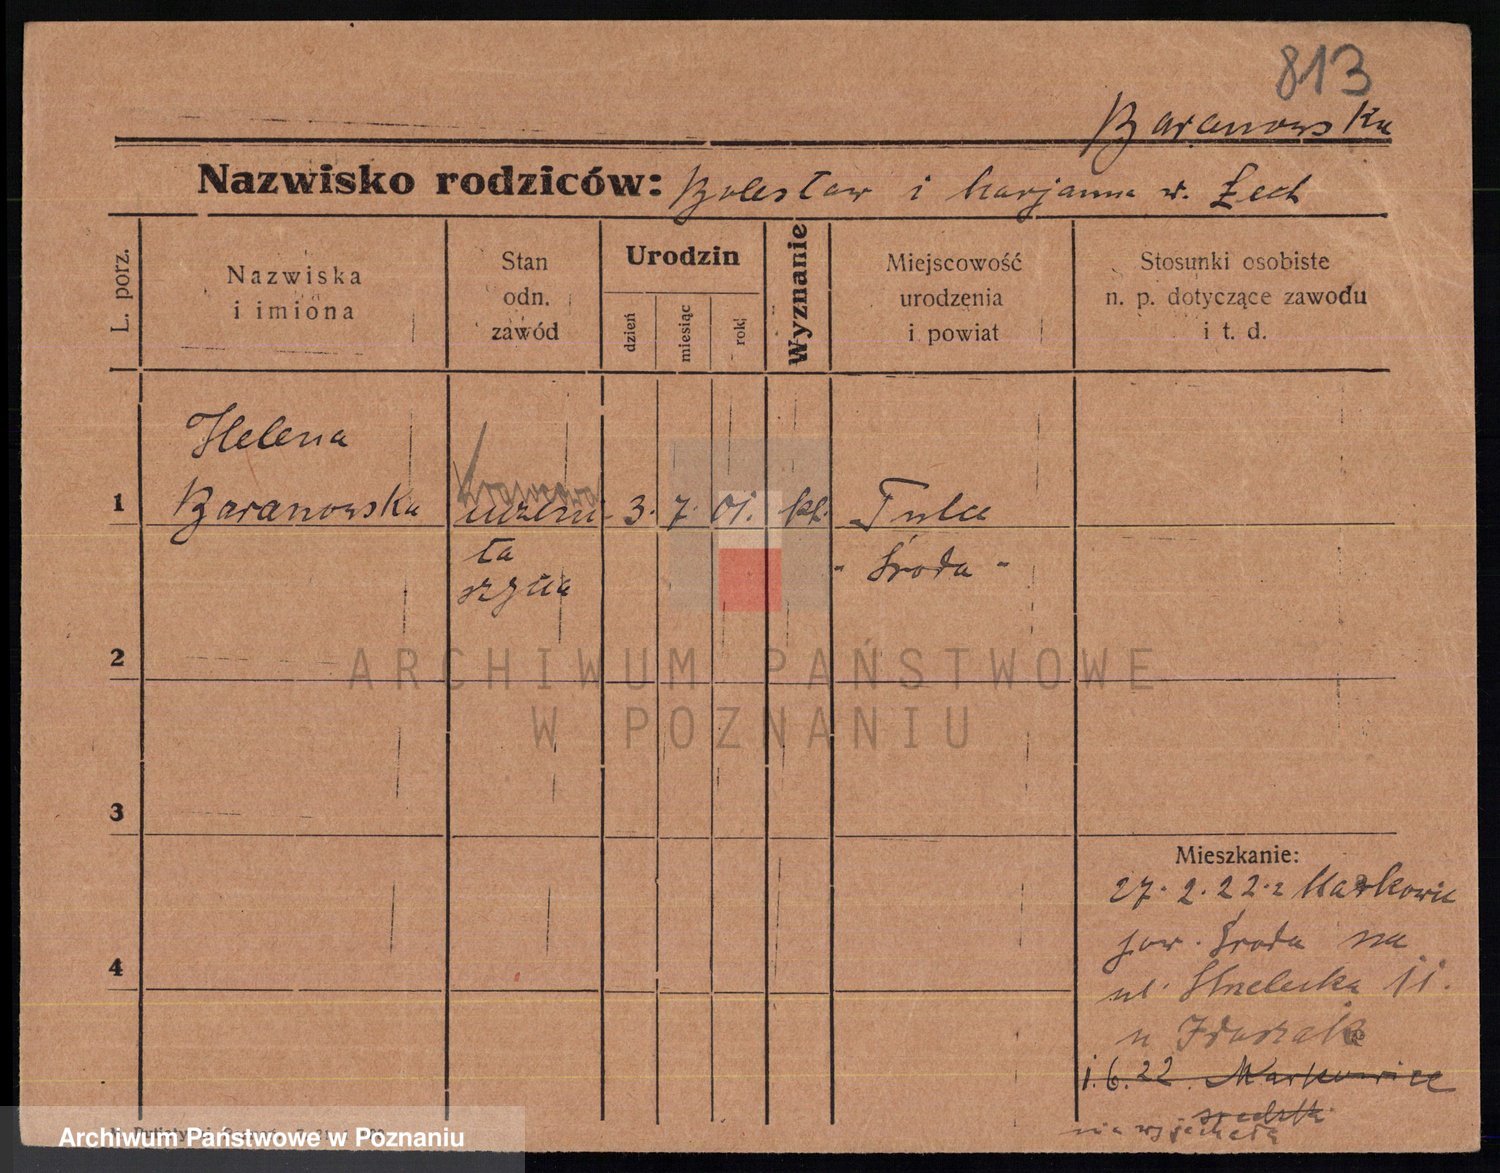 813
Baranowska
Nazwisko rodziców: Bolesław i Marjanna z. Żech
L. porz.
Nazwiska
i imiona
Stan
odn.
zawód
Urodzin
dzień
miesiąc
rok
Wyznanie
Miejscowość
urodzenia
i powiat
Stosunki osobiste
n. p. dotyczące zawodu
i t. d.
Helena
1 Baranowska
krawcowa
3. 7. 01. kt. Tulce
ta
szycia
- Środa -
2
ARCHIWUM PAŃSTWOWE
W POZNANIU
3
Mieszkanie:
27. 2. 22. z Markowic
pow. Środa na
ul. Strzelecka 11.
u
4
1. 6. 22 Markowice
nie wyjechała
Archiwum Państwowe w Poznaniu